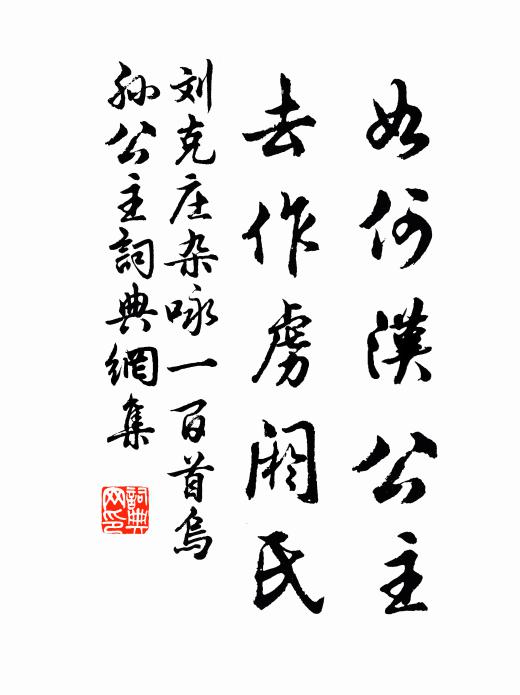 如何漢公主
去作虜閼氏
刘克庄杂咏一百首烏
孫公主詞典網集
詞典网印